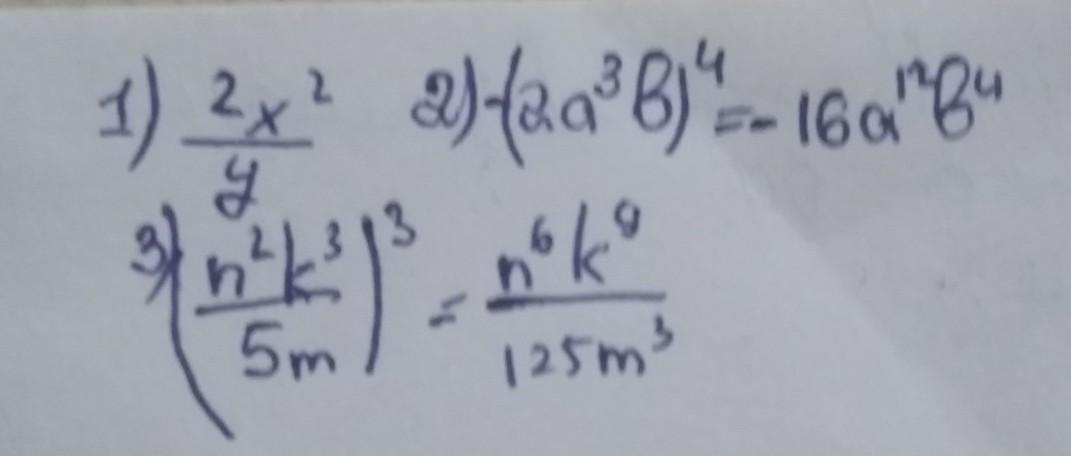 1) 2x²/y 2) -(2a³b)⁴ = -16a¹²b⁴
3) (n²k³/5m)³ = n⁶k⁹/125m³